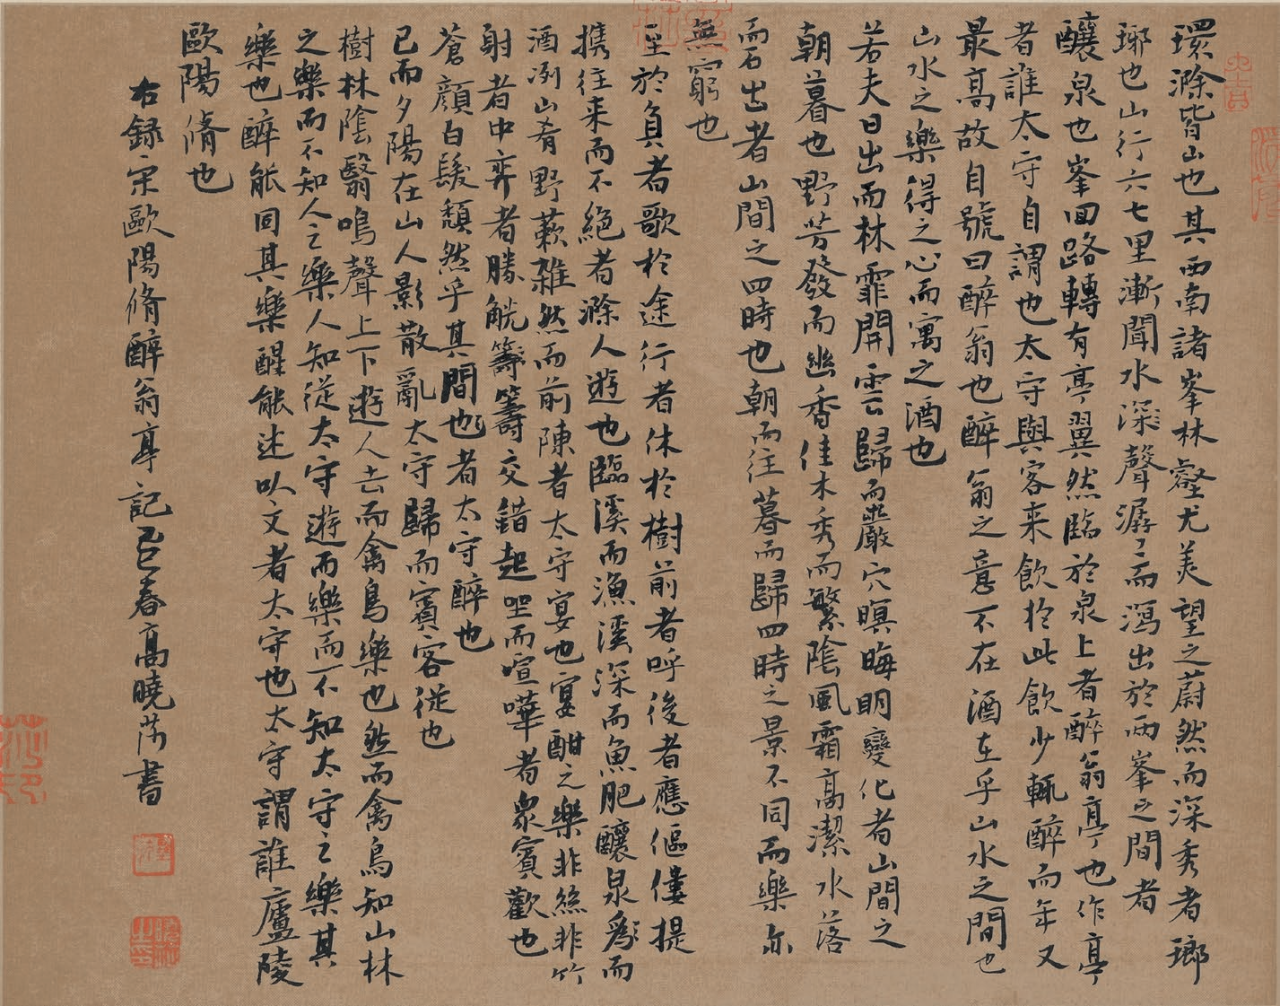 環滁皆山也其西南諸峯林壑尤美望之蔚然而深秀者瑯
琊也山行六七里漸聞水深聲潺〻而瀉出於兩峯之間者
釀泉也峯回路轉有亭翼然臨於泉上者醉翁亭也作亭
者誰太守自謂也太守與客来飲於此飲少輒醉而年又
最高故自號曰醉翁也醉翁之意不在酒在乎山水之間也
山水之樂得之心而寓之酒也
若夫日出而林霏開雲歸而巖穴暝晦明變化者山間之
朝暮也野芳發而幽香佳木秀而繁陰風霜高潔水落
而石出者山間之四時也朝而往暮而歸四時之景不同而樂亦
無窮也
至於負者歌於途行者休於樹前者呼後者應傴僂提
携往来而不絕者滁人遊也臨溪而漁溪深而魚肥釀泉為而
酒洌山肴野蔌雜然而前陳者太守宴也宴酣之樂非絲非竹
射者中弈者勝觥籌籌交錯起坐而喧嘩者衆賓歡也
蒼顏白髮頹然乎其間也者太守醉也
已而夕陽在山人影散亂太守歸而賓客從也
樹林陰翳鳴聲上下遊人去而禽鳥樂也然而禽鳥知山林
之樂而不知人之樂人知從太守遊而樂而不知太守之樂其
樂也醉能同其樂醒能述以文者太守也太守謂誰廬陵
歐陽脩也
右錄宋歐陽脩醉翁亭記乙巳春高曉莎書
莎印